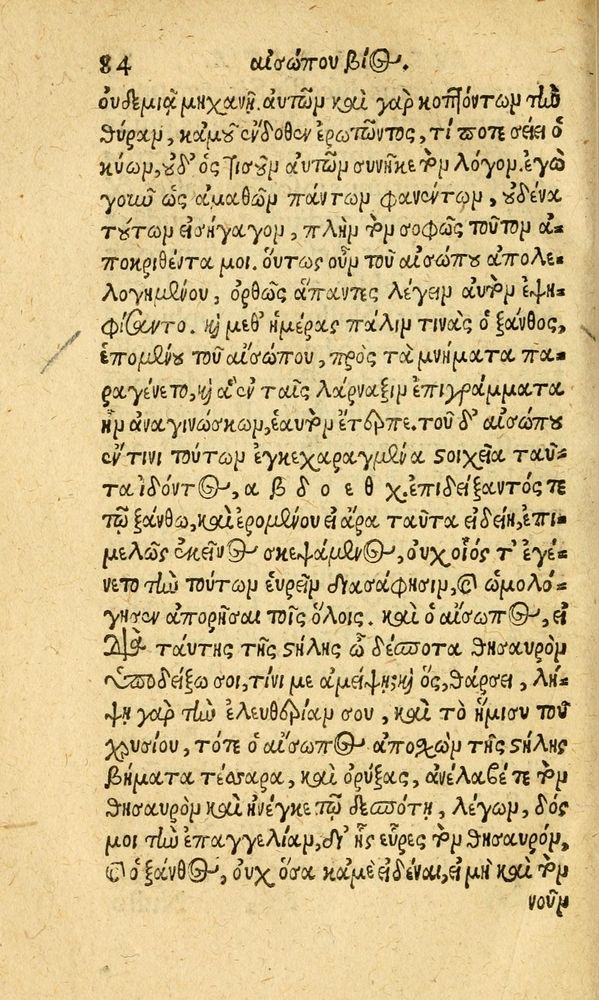 84 αἰσώπου βίος.
οὐδεμιᾷ μηχανῇ. αὐτῶν καὶ γὰρ κοπτόντων τὴν
θύραν, κἀμοῦ ἔνδοθεν ἐρωτῶντος, τί ποτε σείει ὁ
κύων, οὐδ' ὁστισοῦν αὐτῶν συνῆκε τὸν λόγον. ἐγὼ
γοῦν ὡς ἀμαθῶν πάντων φανέντων, οὐδένα
τούτων εἰσήγαγον, πλὴν τὸν σοφῶς τοῦτον ἀ-
ποκριθέντα μοι. οὕτως οὖν τοῦ αἰσώπου ἀπολε-
λογημένου, ὀρθῶς ἅπαντες λέγειν αὐτὸν ἐψη-
φίσαντο. καὶ μεθ' ἡμέρας πάλιν τινὰς ὁ ξάνθος,
ἑπομένου τοῦ αἰσώπου, πρὸς τὰ μνήματα πα-
ραγένετο, καὶ ἃ ἐν ταῖς λάρναξιν ἐπιγράμματα
ἦν ἀναγινώσκων, ἑαυτὸν ἔτερπε. τοῦ δ' αἰσώπου
ἔν τινι τούτων ἐγκεχαραγμένα στοιχεῖα ταῦ-
τα ἰδόντος, α β δ ο ε θ χ. ἐπιδείξαντός τε
τῷ ξάνθῳ, καὶ ἐρομένου εἰ ἄρα ταῦτα εἰδείη, ἐπι-
μελῶς ἐκεῖνος σκεψάμενος, οὐχ οἷός τ' ἐγέ-
νετο τὴν τούτων εὑρεῖν διασάφησιν, καὶ ὡμολό-
γησεν ἀπορῆσαι τοῖς ὅλοις. καὶ ὁ αἴσωπος, εἰ
διὰ ταύτης τῆς στήλης ὦ δέσποτα θησαυρὸν
ὑποδείξω σοι, τίνι με ἀμείψῃ; καὶ ὅς, θάρσει, λή-
ψῃ γὰρ τὴν ἐλευθερίαν σου, καὶ τὸ ἥμισυ τοῦ
χρυσίου, τότε ὁ αἴσωπος ἀποσχὼν τῆς στήλης
βήματα τέσσαρα, καὶ ὀρύξας, ἀνέλαβέ τε τὸν
θησαυρὸν καὶ ἤνεγκε τῷ δεσπότῃ, λέγων, δός
μοι τὴν ἐπαγγελίαν, δι' ἧς εὗρες τὸν θησαυρόν,
καὶ ὁ ξάνθος, οὐχ ὅσα κἀμὲ εἰδέναι, εἰ μὴ καὶ τὸν
νοῦν